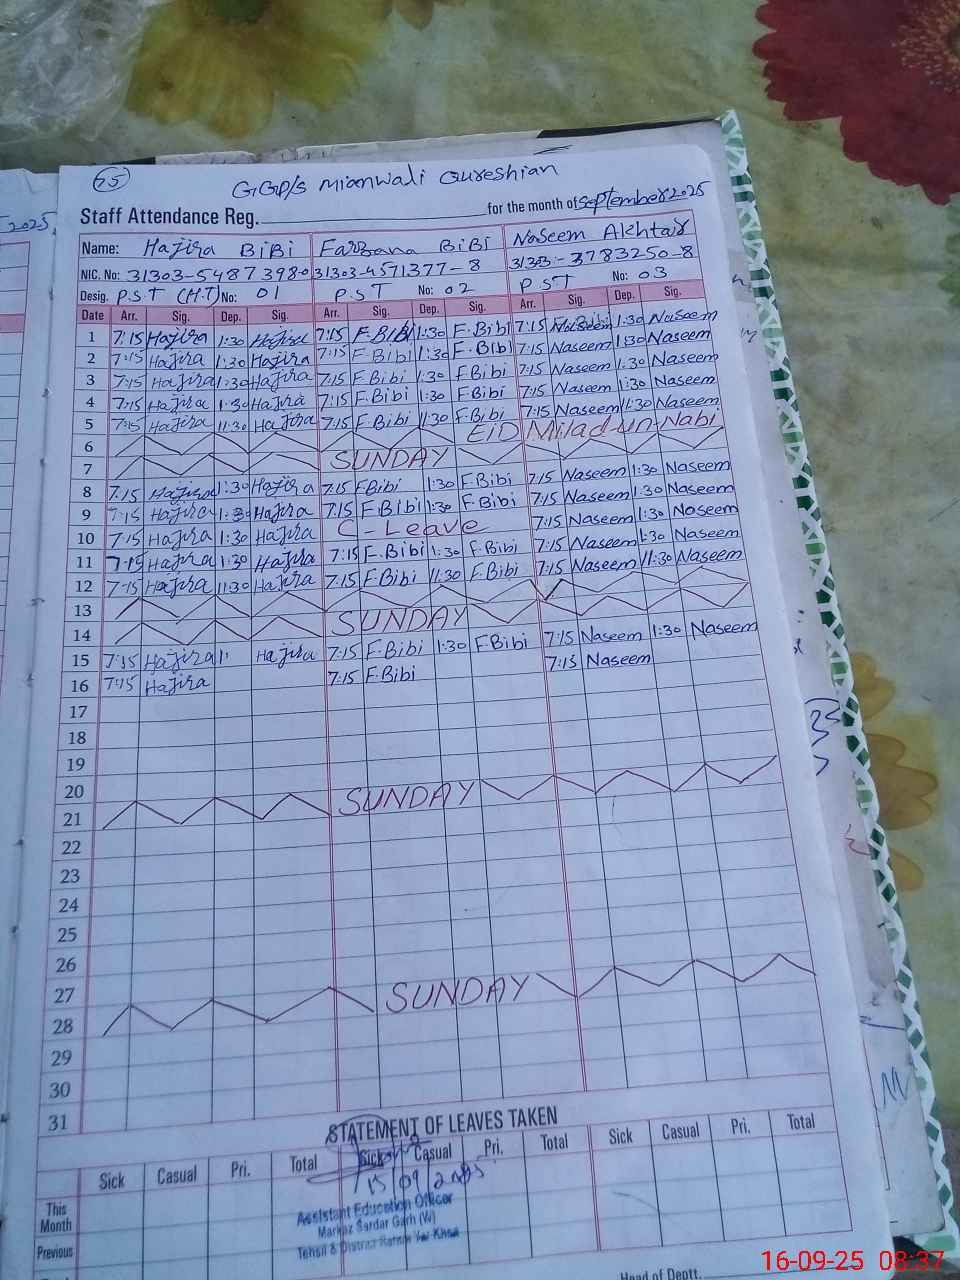 75
GGP/s Mianwali Qureshian
2025
Staff Attendance Reg. for the month of September 2025
Name: Hajira BiBi Farzana BiBi Naseem Akhtar
NIC. No: 31303-5487398-0 31303-4571377-8 31303-3783250-8
Desig. P.S.T (H.T) No: 01 P.S.T No: 02 PST No: 03
Date Arr. Sig. Dep. Sig. Arr. Sig. Dep. Sig. Arr. Sig. Dep. Sig.
1 7:15 Hajira 1:30 Hajira 7:15 F.BiBi 1:30 F.Bibi 7:15 Naseem 1:30 Naseem
2 7:15 Hajira 1:30 Hajira 7:15 F.Bibi 1:30 F.Bibi 7:15 Naseem 1:30 Naseem
3 7:15 Hajira 1:30 Hajira 7:15 F.Bibi 1:30 F.Bibi 7:15 Naseem 1:30 Naseem
4 7:15 Hajira 1:30 Hajira 7:15 F.Bibi 1:30 F.Bibi 7:15 Naseem 1:30 Naseem
5 7:15 Hajira 11:30 Hajira 7:15 F.Bibi 11:30 F.Bibi 7:15 Naseem 11:30 Naseem
6 EiD Milad-un-Nabi
7 SUNDAY
8 7:15 Hajira 1:30 Hajira 7:15 F.Bibi 1:30 F.Bibi 7:15 Naseem 1:30 Naseem
9 7:15 Hajira 1:30 Hajira 7:15 F.Bibi 1:30 F.Bibi 7:15 Naseem 1:30 Naseem
10 7:15 Hajira 1:30 Hajira C-Leave 7:15 Naseem 1:30 Noseem
11 7:15 Hajira 1:30 Hajira 7:15 F.Bibi 1:30 F.Bibi 7:15 Naseem 1:30 Naseem
12 7:15 Hajira 11:30 Hajira 7:15 F.Bibi 11:30 F.Bibi 7:15 Naseem 11:30 Naseem
13
14 SUNDAY
15 7:15 Hajira 1: Hajira 7:15 F.Bibi 1:30 F.Bibi 7:15 Naseem 1:30 Naseem
16 7:15 Hajira 7:15 F.Bibi 7:15 Naseem
17
18
19
20
21 SUNDAY
22
23
24
25
26
27
28 SUNDAY
29
30
31
STATEMENT OF LEAVES TAKEN
Sick Casual Pri. Total Sick Casual Pri. Total Sick Casual Pri. Total
15/09/2025
This Month
Previous
Assistant Education Officer
Markaz Sardar Garh (W)
Tehsil & District Rahim Yar Khan
Head of Deptt.
16-09-25 08:37